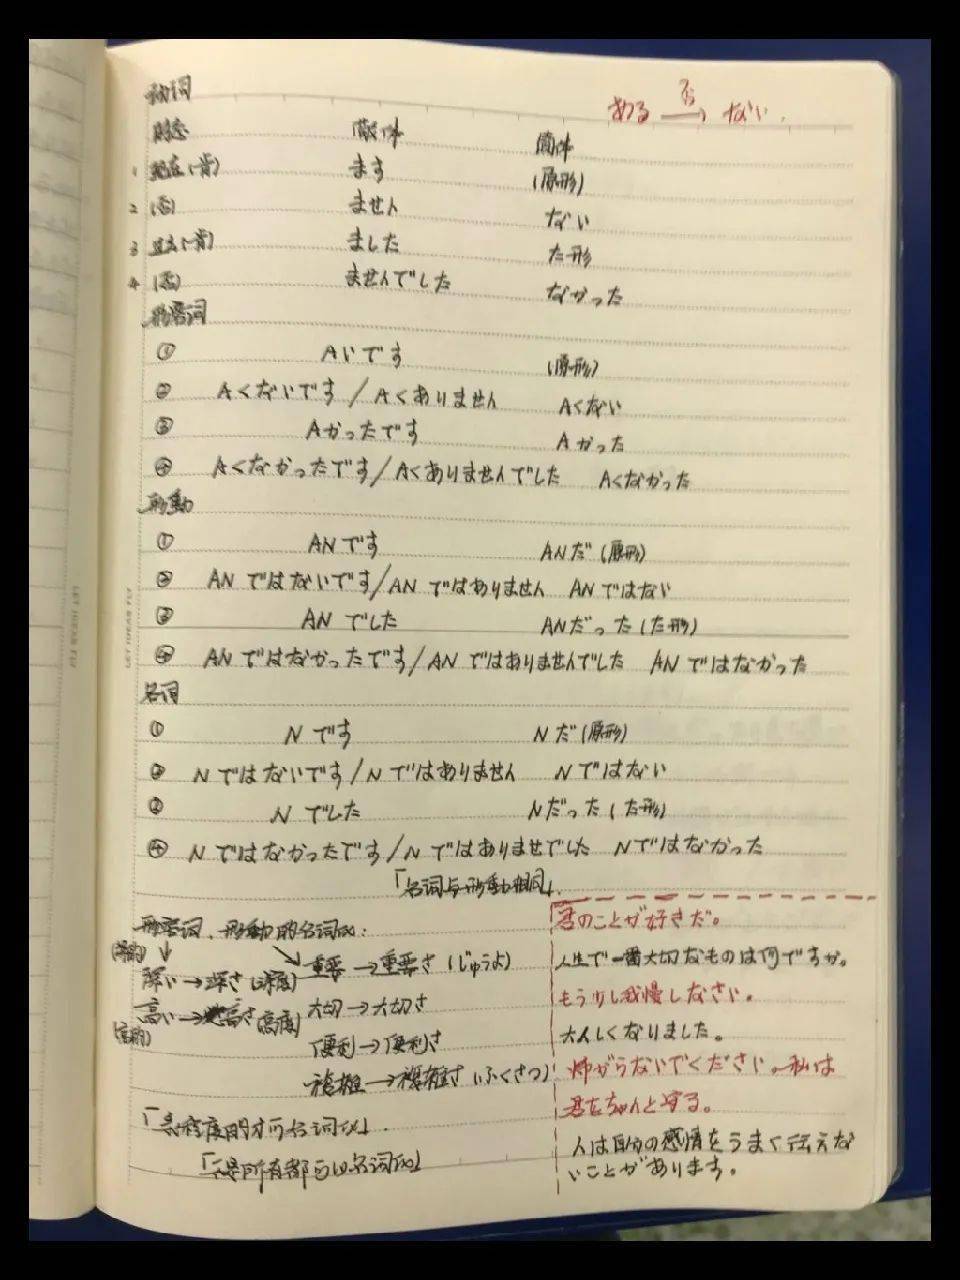 動词
ある 否→ ない.
时态 敬体 简体
1 现在(肯) ます (原形)
2 (否) ません ない
3 过去(肯) ました た形
4 (否) ませんでした なかった
形容词
① Aいです (原形)
② Aくないです/Aくありません Aくない
③ Aかったです Aかった
④ Aくなかったです/Aくありませんでした Aくなかった
形動
① ANです ANだ(原形)
② ANではないです/ANではありません ANではない
③ ANでした ANだった(た形)
④ ANではなかったです/ANではありませんでした ANではなかった
名词
① Nです Nだ(原形)
② Nではないです/Nではありません Nではない
③ Nでした Nだった(た形)
④ Nではなかったです/Nではありませでした Nではなかった
「名词与形動相同」.
形容词、形動的名词化:
深い→深さ(深度) 重要→重要さ(じゅうよ)
高い→高さ(高度) 大切→大切さ
便利→便利さ
複雑→複雑さ(ふくざつ)
「表程度的才可名词化」.
「不是所有都可以名词化」
君のことが好きだ。
人生で一番大切なものは何ですか。
もう少し我慢しなさい。
大人しくなりました。
怖がらないでください。私は
君をちゃんと守る。
人は自分の感情をうまく伝えな
いことがあります。
LET IDEAS FLY
LET IDEAS FLY